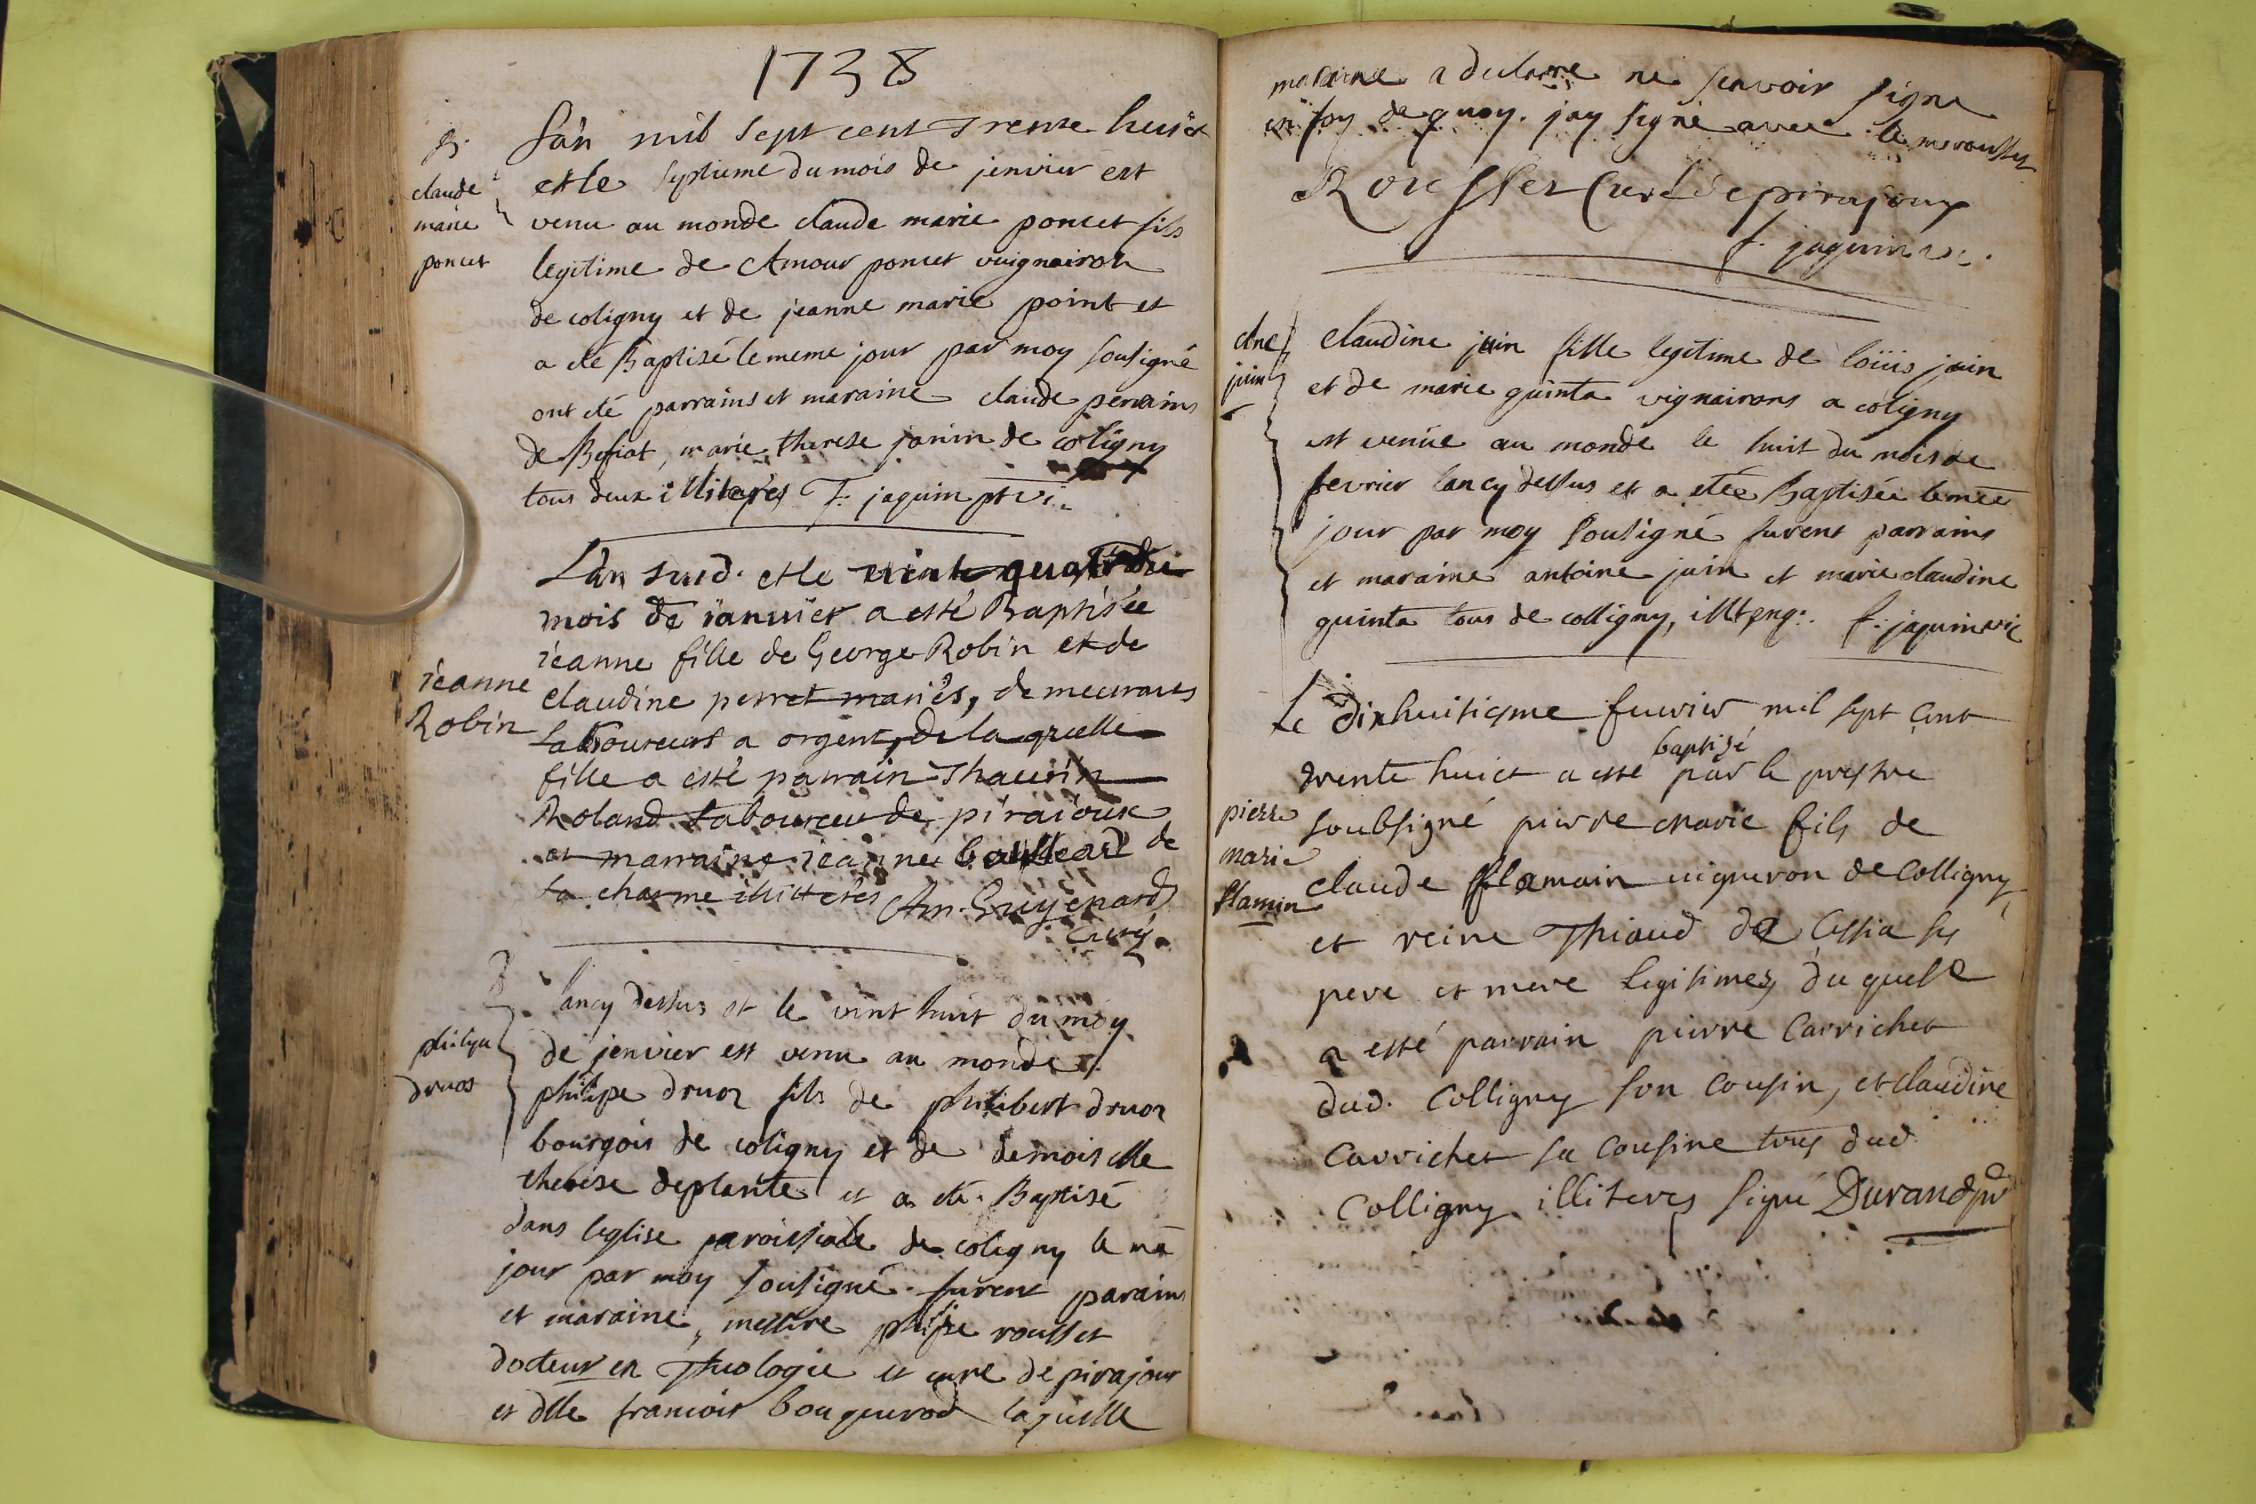 1738
B.
claude
marie
poncet
Lan mil sept cent trente huict
et le septieme du mois de jenvier est
venu au monde claude marie poncet fils
legitime de Amour poncet vuignairon
de coligny et de jeanne marie point et
a eté Baptisé le meme jour par moy souligné
ont eté parrains et maraine claude perrains
de Befiat, marie therese janin de coligny
tous deux illiterés F. jaquim
Lan susd. et le
mois de ianuier a esté Baptisée
ieanne fille de George Robin et de
claudine perret mariés, demeurants
Laboureurs a orgent, de la quelle
fille a esté parrain Thaurin
Roland Laboureur de piraioux
et marraine ieanne de
la charme illitterés An. Guyenard
Curé
ieanne
Robin
B
philipe
druos
lancy dessus et le vint huit du moy
de jenvier est venu au monde
philipe druos fils de philibert druos
bourgois de coligny et de demoiselle
therese deplante et a eté Baptisé
dans leglise paroissiale de coligny le më
jour par moy soutigné. furent parains
et maraine, messire philipe rousset
docteur en Theologie et curé de pirajour
et dlle francois bouquerod laquelle
maraine a declaré ne scavoir signe
en foy de quoy. jay signé avec le mr rousset
Rousset Curé de pirajoux
f. jaquim vic.
clne
juin
claudine juin fille legitime de loüis juin
et de marie quinta vignairons a coligny
est venüe au monde le huit du mois de
fevrier lancy dessus et a etée Baptisée le mëe
jour par moy soutigné furent parrains
et maraine antoine juin et marie claudine
quinta tous de colligny, f. jaquim vic
Le dixhuitiesme feuvrier mil sept cent
trente huict a esté baptisé par le prestre
soubsigné pierre marie fils de
claude flamain vigneron de Colligny
et reine Thiaud de Cessia ses
pere et mere legitimes, du quelle
a esté parrain pierre Carrichet
dud. Colligny son cousin, et claudine
Carrichet sa cousine tous dud
Colligny illiteres signé Durand
pierre
marie
flamin